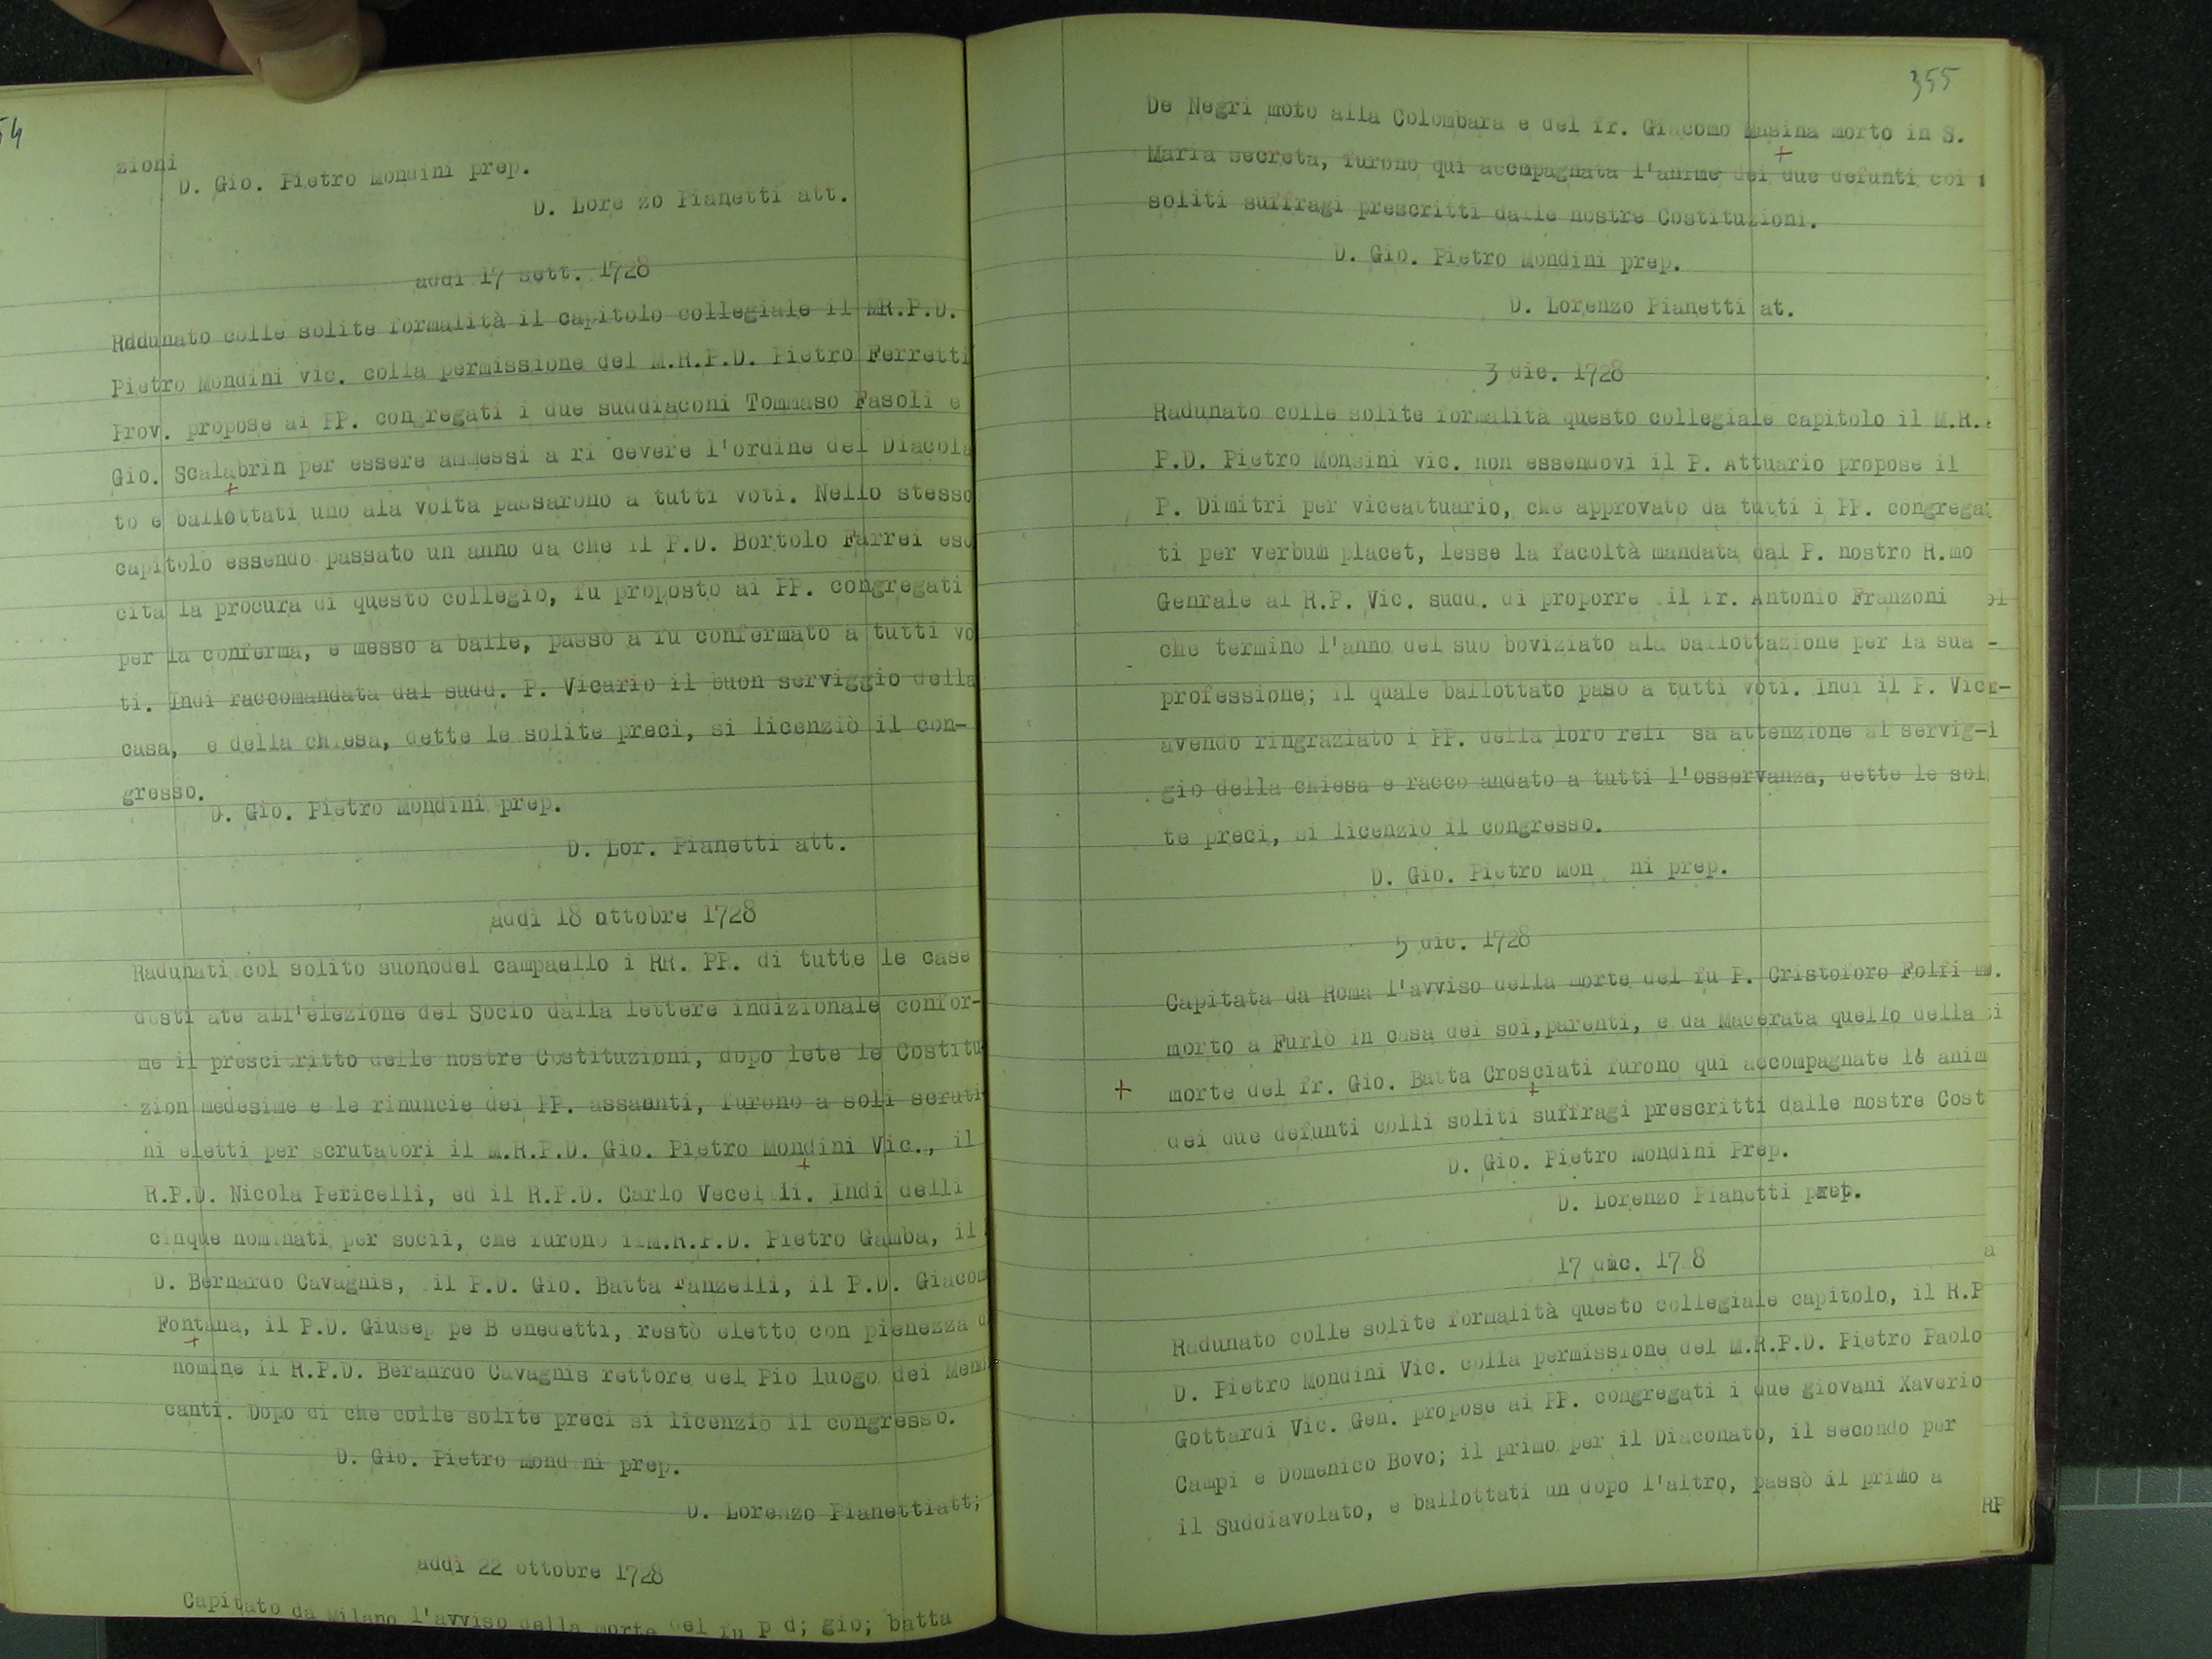 54
zioni
D. Gio. Pietro Mondini prep.
D. Lore zo Pianetti att.
addì 17 sett. 1728
Radunato colle solite formalità il capitolo collegiale il MR.P.D.
Pietro Mondini vic. colla permissione del M.R.P.D. Pietro Ferretti
Prov. propose ai PP. congregati i due suddiaconi Tommaso Fasoli e
Gio. Scalabrin per essere ammessi a ri cevere l'ordine del Diacola
to e ballottati uno ala volta passarono a tutti voti. Nello stesso
capitolo essendo passato un anno da che il P.D. Bortolo Farrei esc
cita la procura di questo collegio, fu proposto ai PP. congregati
per la conferma, e messo a balle, passò a fu confermato a tutti vo
ti. Indi raccomandata dal sudd. P. Vicario il buon serviggio della
casa, e della chiesa, dette le solite preci, si licenziò il con-
gresso.
D. Gio. Pietro Mondini prep.
D. Lor. Pianetti att.
addì 18 ottobre 1728
Radunati col solito suonodel campaello i RR. PP. di tutte le case
desti ate all'elezione del Socio dalla lettere indizionale confor-
me il presci ritto delle nostre Costituzioni, dopo lete le Costitu
zion medesime e le rinuncie dei PP. assaenti, furono a soli scruti
ni eletti per scrutatori il M.R.P.D. Gio. Pietro Mondini Vic., il
R.P.D. Nicola Pericelli, ed il R.P.D. Carlo Vecelli. Indi delli
cinque nominati per socii, che furono ilM.R.P.D. Pietro Gamba, il
D. Bernardo Cavagnis, il P.D. Gio. Batta Fanzelli, il P.D. Giacom
Fontana, il P.D. Giusep pe B enedetti, restò eletto con pienezza d
nomine il R.P.D. Beranrdo Cavagnis rettore del Pio luogo dei Mend
canti. Dopo di che colle solite preci si licenziò il congresso.
D. Gio. Pietro Mond ni prep.
D. Lorenzo Pianettiatt;
addì 22 ottobre 1728
Capitato da Milano l'avviso della morte del fu p d; gio; batta
355
De Negri moto alla Colombara e del fr. Giacomo Masina morto in S.
Maria secreta, furono qui accmpagnata l'anime dei due defunti coi
soliti suffragi prescritti dalle nostre Costituzioni.
D. Gio. Pietro Mondini prep.
D. Lorenzo Pianetti at.
3 dic. 1728
Radunato colle solite formalità questo collegiale capitolo il M.R.
P.D. Pietro Monsini vic. non essendovi il P. Attuario propose il
P. Dimitri per viceattuario, che approvato da tutti i PP. congrega
ti per verbum placet, lesse la facoltà mandata dal P. nostro R.mo
Genrale al R.P. Vic. sudd. di proporre il fr. Antonio Franzoni
che terminò l'anno del suo boviziato ala ballottazione per la sua
professione; il quale ballottato pasò a tutti voti. Indi il P. Vic
avendo ringraziato i PP. della loro reli sa attenzione al servig-
gio della chiesa e racco andato a tutti l'osservanza, dette le sol
te preci, si licenziò il congresso.
D. Gio. Pietro Mon ni prep.
5 dic. 1728
Capitata da Roma l'avviso della morte del fu P. Cristoforo Folfi
morto a Furlò in casa dei soi,parenti, e da Macerata quello della
+ morte del fr. Gio. Batta Crosciati furono qui accompagnate le anim
dei due defunti colli soliti suffragi prescritti dalle nostre Cost
D. Gio. Pietro Mondini Prep.
D. Lorenzo Pianetti pret.
17 dic. 17 8
Radunato colle solite formalità questo collegiale capitolo, il R.P
D. Pietro Mondini Vic. colla permissione del M.R.P.D. Pietro Paolo
Gottardi Vic. Gen. propose ai PP. congregati i due giovani Xaverio
Campi e Domenico Bovo; il primo per il Diaconato, il secondo per
il Suddiavolato, e ballottati un dopo l'altro, passò il primo a
RP